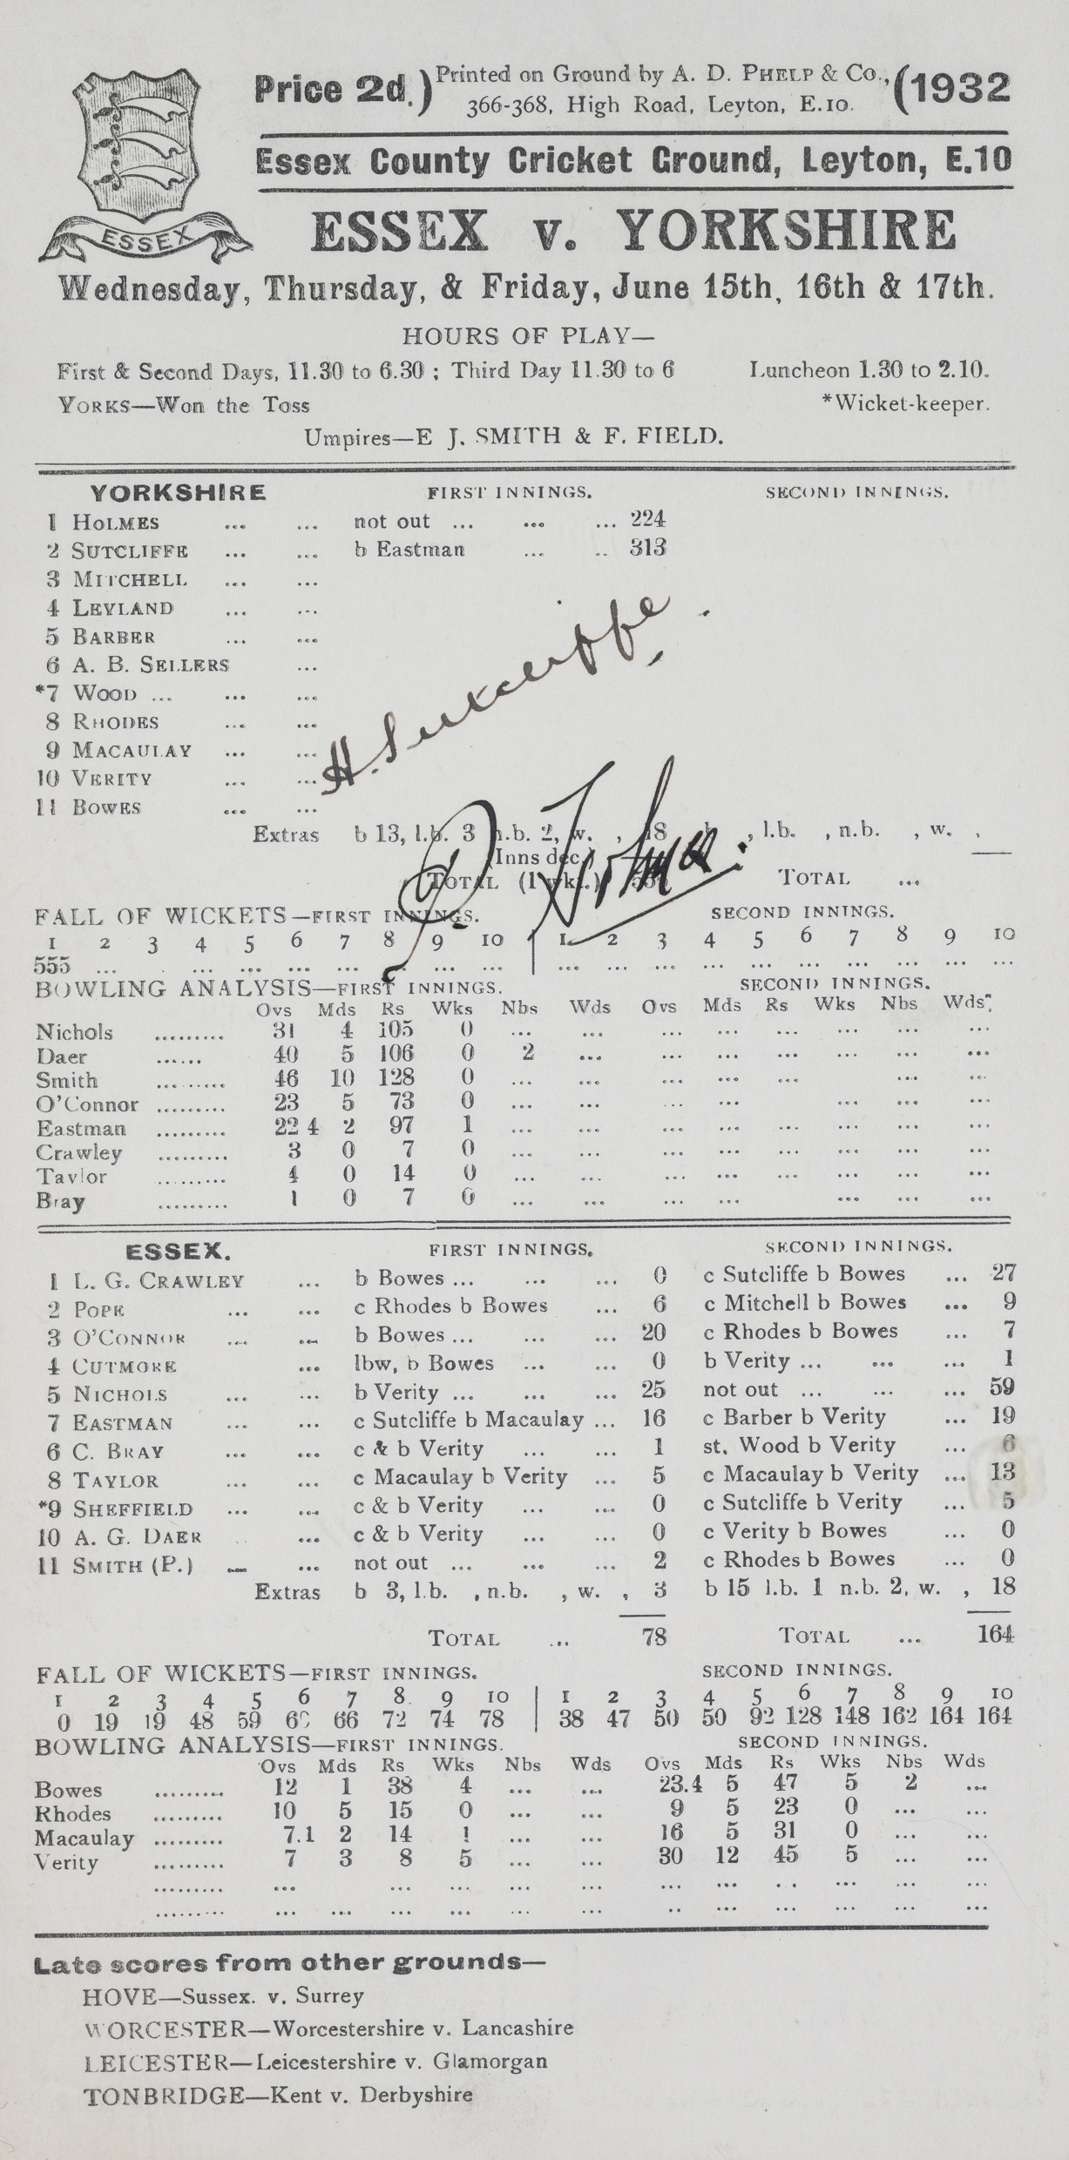 Price 2d.) Printed on Ground by A. D. PHELP & Co., (1932
366-368, High Road, Leyton, E.10.
Essex County Cricket Ground, Leyton, E.10
ESSEX
ESSEX v. YORKSHIRE
Wednesday, Thursday, & Friday, June 15th, 16th & 17th.
HOURS OF PLAY—
First & Second Days, 11.30 to 6.30 ; Third Day 11.30 to 6 Luncheon 1.30 to 2.10.
YORKS—Won the Toss *Wicket-keeper.
Umpires—E J. SMITH & F. FIELD.
YORKSHIRE FIRST INNINGS. SECOND INNINGS.
1 HOLMES ... ... not out ... ... ... 224
2 SUTCLIFFE ... ... b Eastman ... .. 313
3 MITCHELL ... ...
4 LEYLAND ... ...
5 BARBER ... ...
6 A. B. SELLERS ...
*7 WOOD ... ... ...
8 RHODES ... ...
9 MACAULAY ... ...
10 VERITY ... ...
11 BOWES ... ...
H. Sutcliffe.
P. Holmes.
Extras b 13, l.b. 3 n.b. 2, w. , 18 b , l.b. , n.b. , w. ,
(Inns dec.)
TOTAL (1 wkt.) 555 TOTAL ...
FALL OF WICKETS—FIRST INNINGS. SECOND INNINGS.
1 2 3 4 5 6 7 8 9 10 1 2 3 4 5 6 7 8 9 10
555 ... . ... ... ... ... ... ... ... ... ... ... ... ... ... ... ... ... ...
BOWLING ANALYSIS—FIRST INNINGS. SECOND INNINGS.
Ovs Mds Rs Wks Nbs Wds Ovs Mds Rs Wks Nbs Wds
Nichols ......... 31 4 105 0 ... ... ... ... ... ... ... ...
Daer ...... 40 5 106 0 2 ... ... ... ... ... ... ...
Smith ......... 46 10 128 0 ... ... ... ... ... ... ...
O'Connor ......... 23 5 73 0 ... ... ... ... ... ... ...
Eastman ......... 22 4 2 97 1 ... ... ... ... ... ... ... ...
Crawley ......... 3 0 7 0 ... ... ... ... ... ... ... ...
Taylor ......... 4 0 14 0 ... ... ... ... ... ... ... ...
Bray ......... 1 0 7 0 ... ... ... ... ... ... ...
ESSEX. FIRST INNINGS. SECOND INNINGS.
1 L. G. CRAWLEY ... b Bowes ... ... ... 0 c Sutcliffe b Bowes ... 27
2 POPE ... ... c Rhodes b Bowes ... 6 c Mitchell b Bowes ... 9
3 O'CONNOR ... ... b Bowes ... ... ... 20 c Rhodes b Bowes ... 7
4 CUTMORE ... lbw, b Bowes ... ... 0 b Verity ... ... ... 1
5 NICHOLS ... ... b Verity ... ... ... 25 not out ... ... ... 59
7 EASTMAN ... ... c Sutcliffe b Macaulay ... 16 c Barber b Verity ... 19
6 C. BRAY ... ... c & b Verity ... ... 1 st. Wood b Verity ... 6
8 TAYLOR ... ... c Macaulay b Verity ... 5 c Macaulay b Verity ... 13
*9 SHEFFIELD ... ... c & b Verity ... ... 0 c Sutcliffe b Verity ... 5
10 A. G. DAER .. ... c & b Verity ... ... 0 c Verity b Bowes ... 0
11 SMITH (P.) ... ... not out ... ... ... 2 c Rhodes b Bowes ... 0
Extras b 3, l.b. , n.b. , w. , 3 b 15 l.b. 1 n.b. 2, w. , 18
TOTAL ... 78 TOTAL ... 164
FALL OF WICKETS—FIRST INNINGS. SECOND INNINGS.
1 2 3 4 5 6 7 8 9 10 1 2 3 4 5 6 7 8 9 10
0 19 19 48 59 66 72 74 78 38 47 50 50 92 128 148 162 164 164
BOWLING ANALYSIS—FIRST INNINGS. SECOND INNINGS.
Ovs Mds Rs Wks Nbs Wds Ovs Mds Rs Wks Nbs Wds
Bowes ......... 12 1 38 4 ... ... 23.4 5 47 5 2 ...
Rhodes ......... 10 5 15 0 ... ... 9 5 23 0 ... ...
Macaulay ......... 7.1 2 14 1 ... ... 16 5 31 0 ... ...
Verity ......... 7 3 8 5 ... ... 30 12 45 5 ... ...
......... ... ... ... ... ... ... ... .. ... ... ...
......... ... ... ... ... ... ... .. ... ... ... ... ...
Late scores from other grounds—
HOVE—Sussex. v. Surrey
WORCESTER—Worcestershire v. Lancashire
LEICESTER—Leicestershire v. Glamorgan
TONBRIDGE—Kent v. Derbyshire